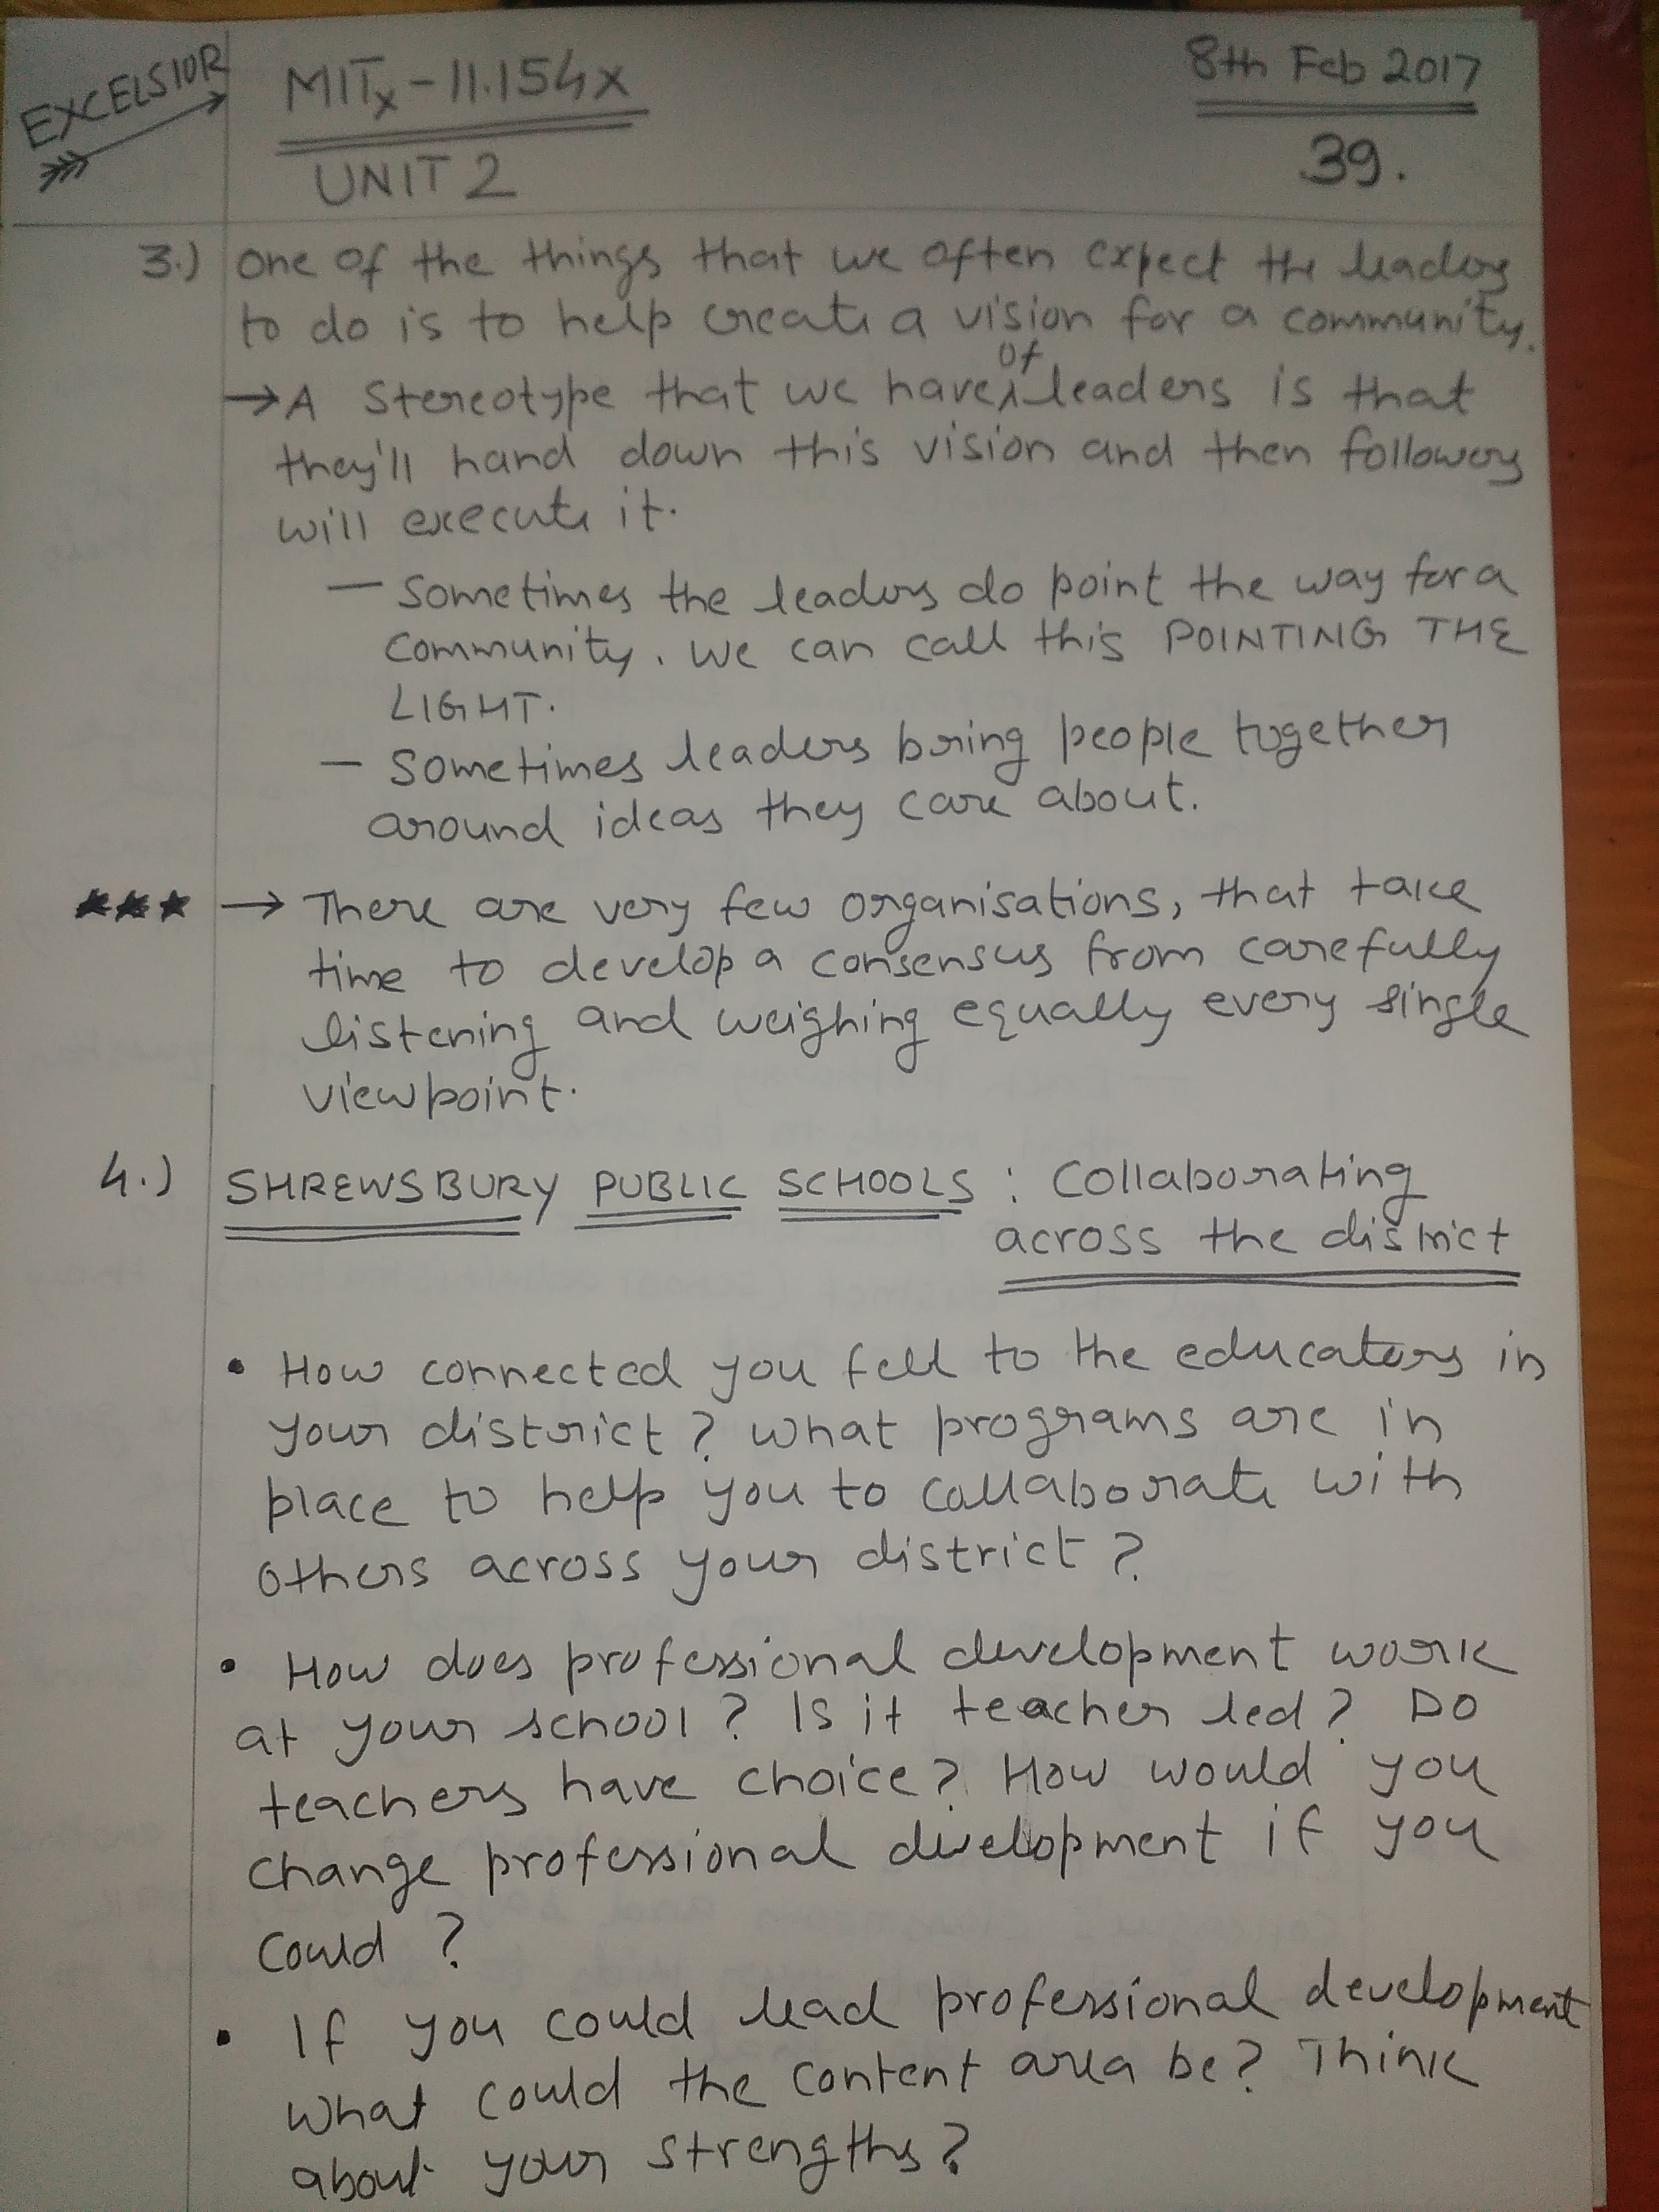 EXCELSIOR
MITx - 11.154x
UNIT 2
8th Feb 2017
39.
3.) One of the things that we often expect the leaders
to do is to help create a vision for a community.
→ A Stereotype that we have of leaders is that
they'll hand down this vision and then followers
will execute it.
— Sometimes the leaders do point the way for a
community. We can call this POINTING THE
LIGHT.
— Sometimes leaders bring people together
around ideas they care about.
★★★ → There are very few organisations, that take
time to develop a consensus from carefully
listening and weighing equally every single
viewpoint.
4.) SHREWSBURY PUBLIC SCHOOLS : Collaborating
across the district
• How connected you fell to the educators in
your district? What programs are in
place to help you to collaborate with
others across your district?
• How does professional development work
at your school? Is it teacher led? Do
teachers have choice? How would you
change professional development if you
could?
• If you could lead professional development
what could the content area be? Think
about your strengths?